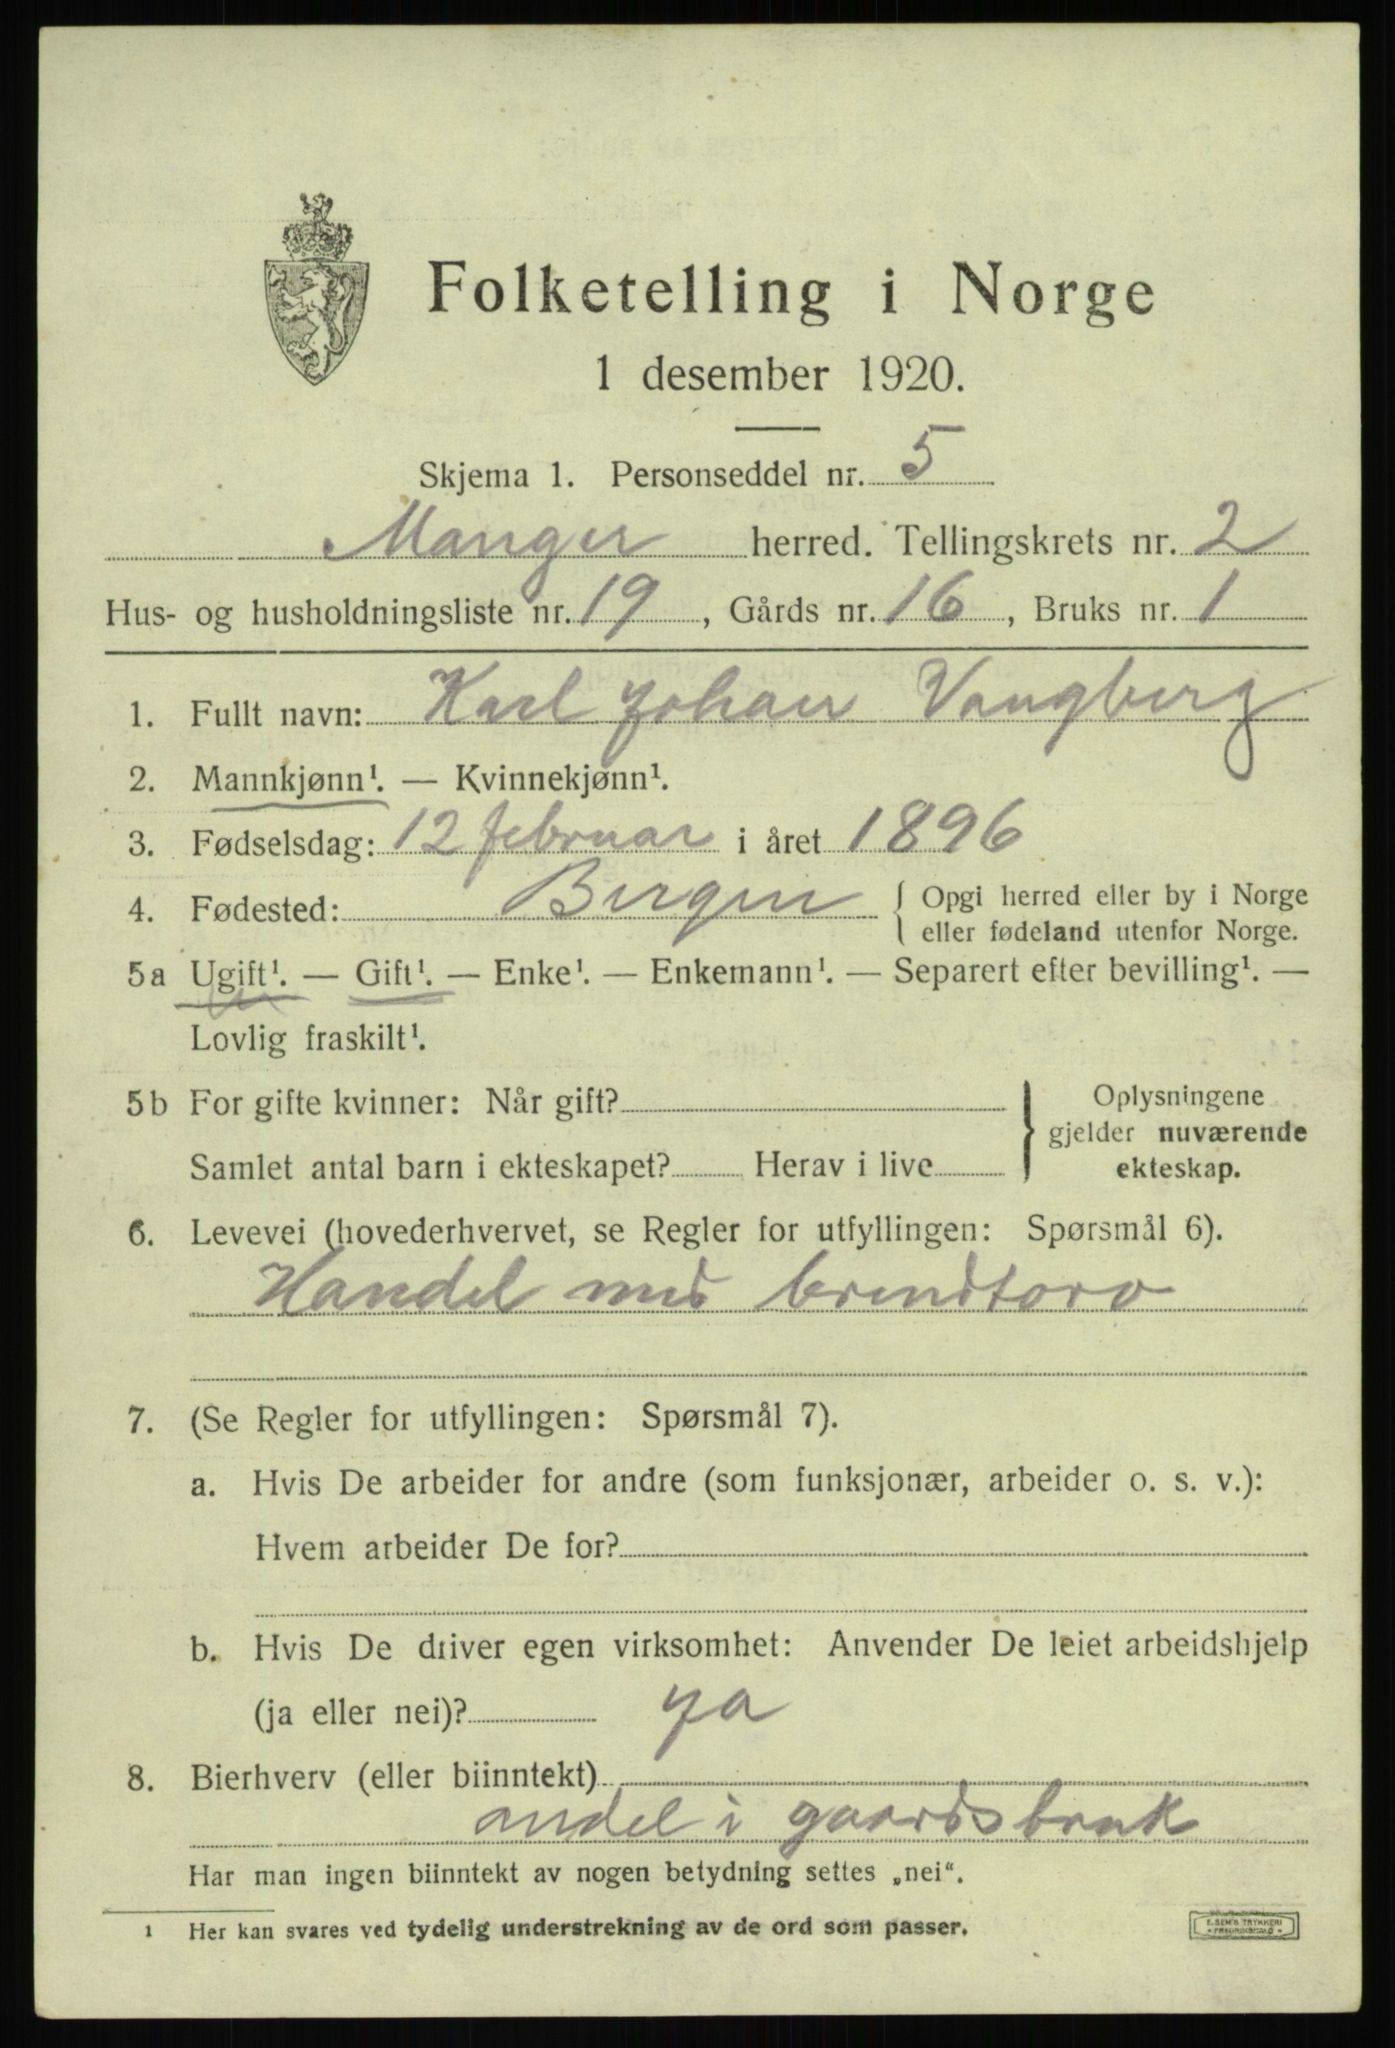 Folketelling i Norge
1 desember 1920.
Skjema 1. Personseddel nr. 5
Manger herred. Tellingskrets nr. 2
Hus- og husholdningsliste nr. 19, Gårds nr. 16, Bruks nr. 1
1. Fullt navn: Karl Johan Vangberg
2. Mannkjønn¹. — Kvinnekjønn¹.
3. Fødselsdag: 12 februar i året 1896
4. Fødested: Bergen { Opgi herred eller by i Norge
eller fødeland utenfor Norge.
5a Ugift¹. — Gift¹. — Enke¹. — Enkemann¹. — Separert efter bevilling¹. —
Lovlig fraskilt¹.
5b For gifte kvinner: Når gift?
Samlet antal barn i ekteskapet? Herav i live
} Oplysningene
gjelder nuværende
ekteskap.
6. Levevei (hovederhvervet, se Regler for utfyllingen: Spørsmål 6).
Handel med brendtorv
7. (Se Regler for utfyllingen: Spørsmål 7).
a. Hvis De arbeider for andre (som funksjonær, arbeider o. s. v.):
Hvem arbeider De for?
b. Hvis De driver egen virksomhet: Anvender De leiet arbeidshjelp
(ja eller nei)? ja
8. Bierhverv (eller biinntekt)
andel i gaardsbruk
Har man ingen biinntekt av nogen betydning settes „nei".
1 Her kan svares ved tydelig understrekning av de ord som passer.
E. SEM'S TRYKKERI
FREDRIKSHALD